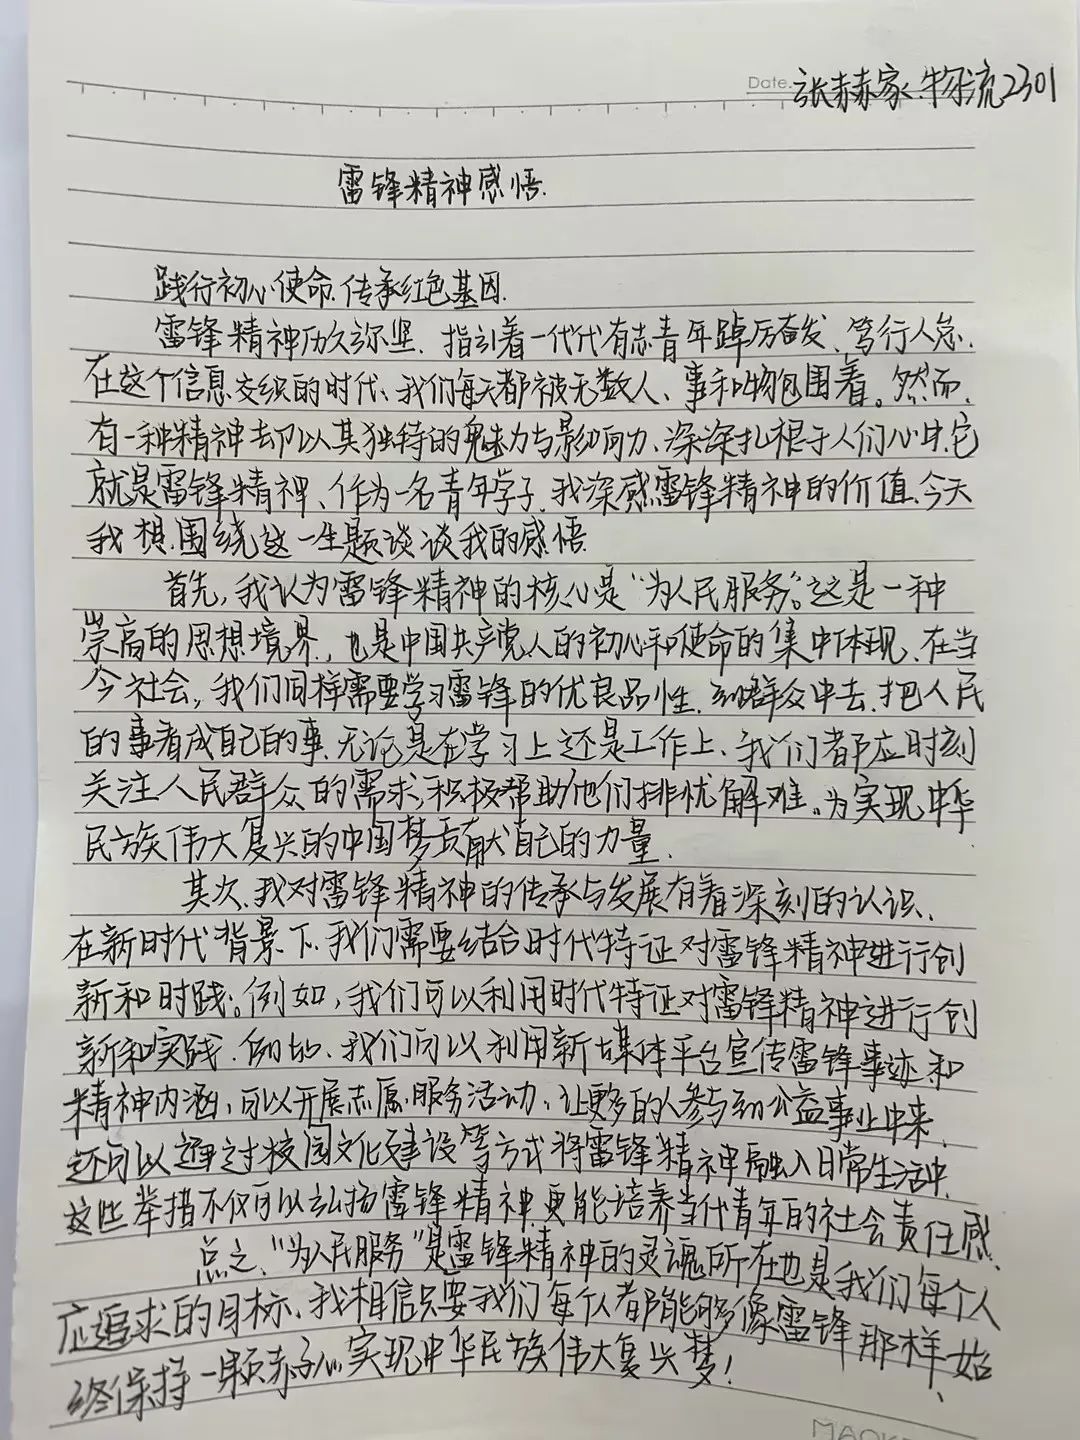 Date.
张赫家.物流2301
雷锋精神感悟.
践行初心使命.传承红色基因.
雷锋精神历久弥坚.指引着一代代有志青年踔厉奋发、笃行人总.
在这个信息交织的时代、我们每天都被无数人、事和物包围着。然而.
有一种精神却以其独特的魅力与影响力、深深扎根于人们心中.它
就是雷锋精神、作为一名青年学子.我深感雷锋精神的价值.今天
我想.围绕这一主题谈谈我的感悟.
首先,我认为雷锋精神的核心是“为人民服务”。这是一种
崇高的思想境界,也是中国共产党人的初心和使命的集中体现、在当
今社会,我们同样需要学习雷锋的优良品性.到群众中去.把人民
的事看成自己的事.无论是在学习上还是工作上、我们都应时刻
关注人民群众的需求,积极帮助他们排忧解难。为实现中华
民族伟大复兴的中国梦贡献自己的力量.
其次.我对雷锋精神的传承与发展有着深刻的认识.
在新时代背景下.我们需要结合时代特征对雷锋精神进行创
新和时践。例如,我们可以利用时代特征对雷锋精神进行创
新和实践.例如、我们可以利用新媒体平台宣传雷锋事迹和
精神内涵,可以开展志愿服务活动、让更多的人参与到公益事业中来.
还可以通过校园文化建设等方式将雷锋精神融入日常生活中.
这些举措不仅可以弘扬雷锋精神更能培养当代青年的社会责任感.
总之、“为人民服务”是雷锋精神的灵魂所在也是我们每个人
应追求的目标、我相信只要我们每个人都能够像雷锋那样、始
终保持一颗赤子心实现中华民族伟大复兴梦!